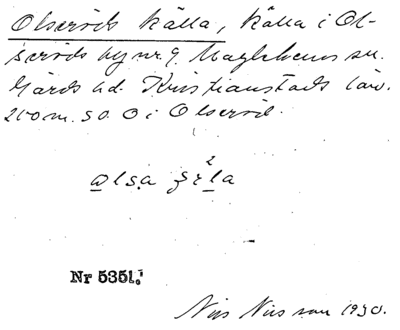 Olseröds källa, källa i Ol-
seröds by nr. 9. Maglehems sn.
Gärds hd. Kristianstads län.
200 m. s. o. O i Olseröd.
Nr 5351.
Nils Nilsson 1930.